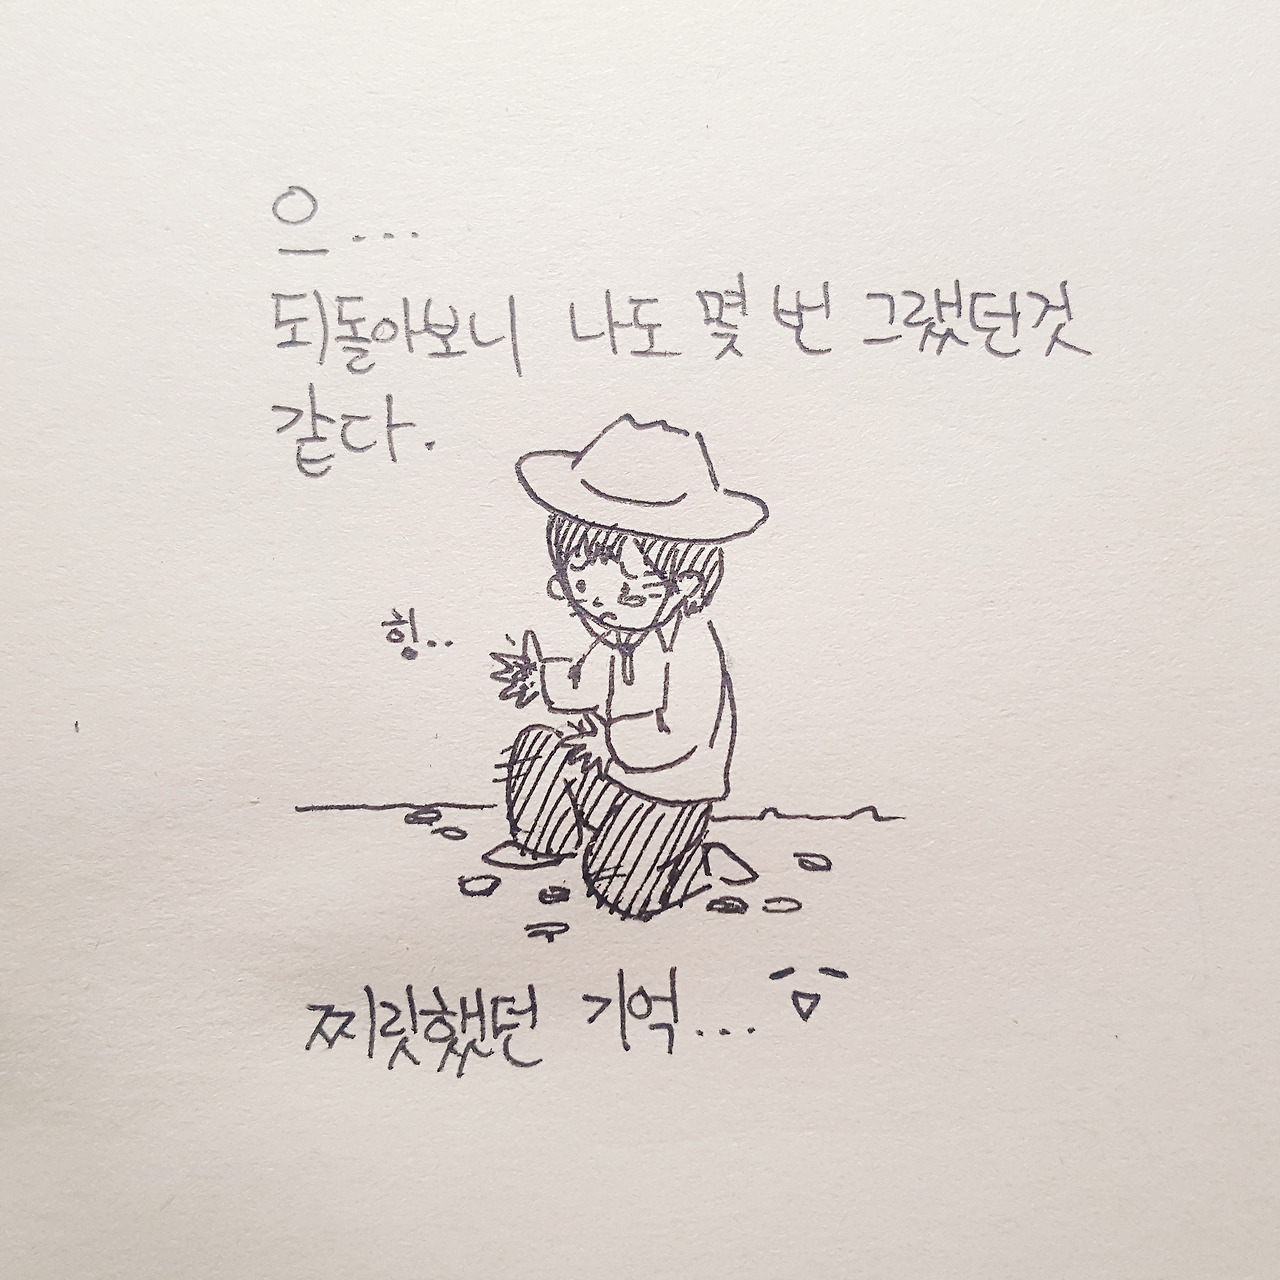 으...
되돌아보니 나도 몇 번 그랬던것
같다.
힝..
찌릿했던 기억...